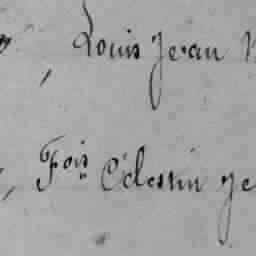 , Louis Jean
, Fois Célestin Je